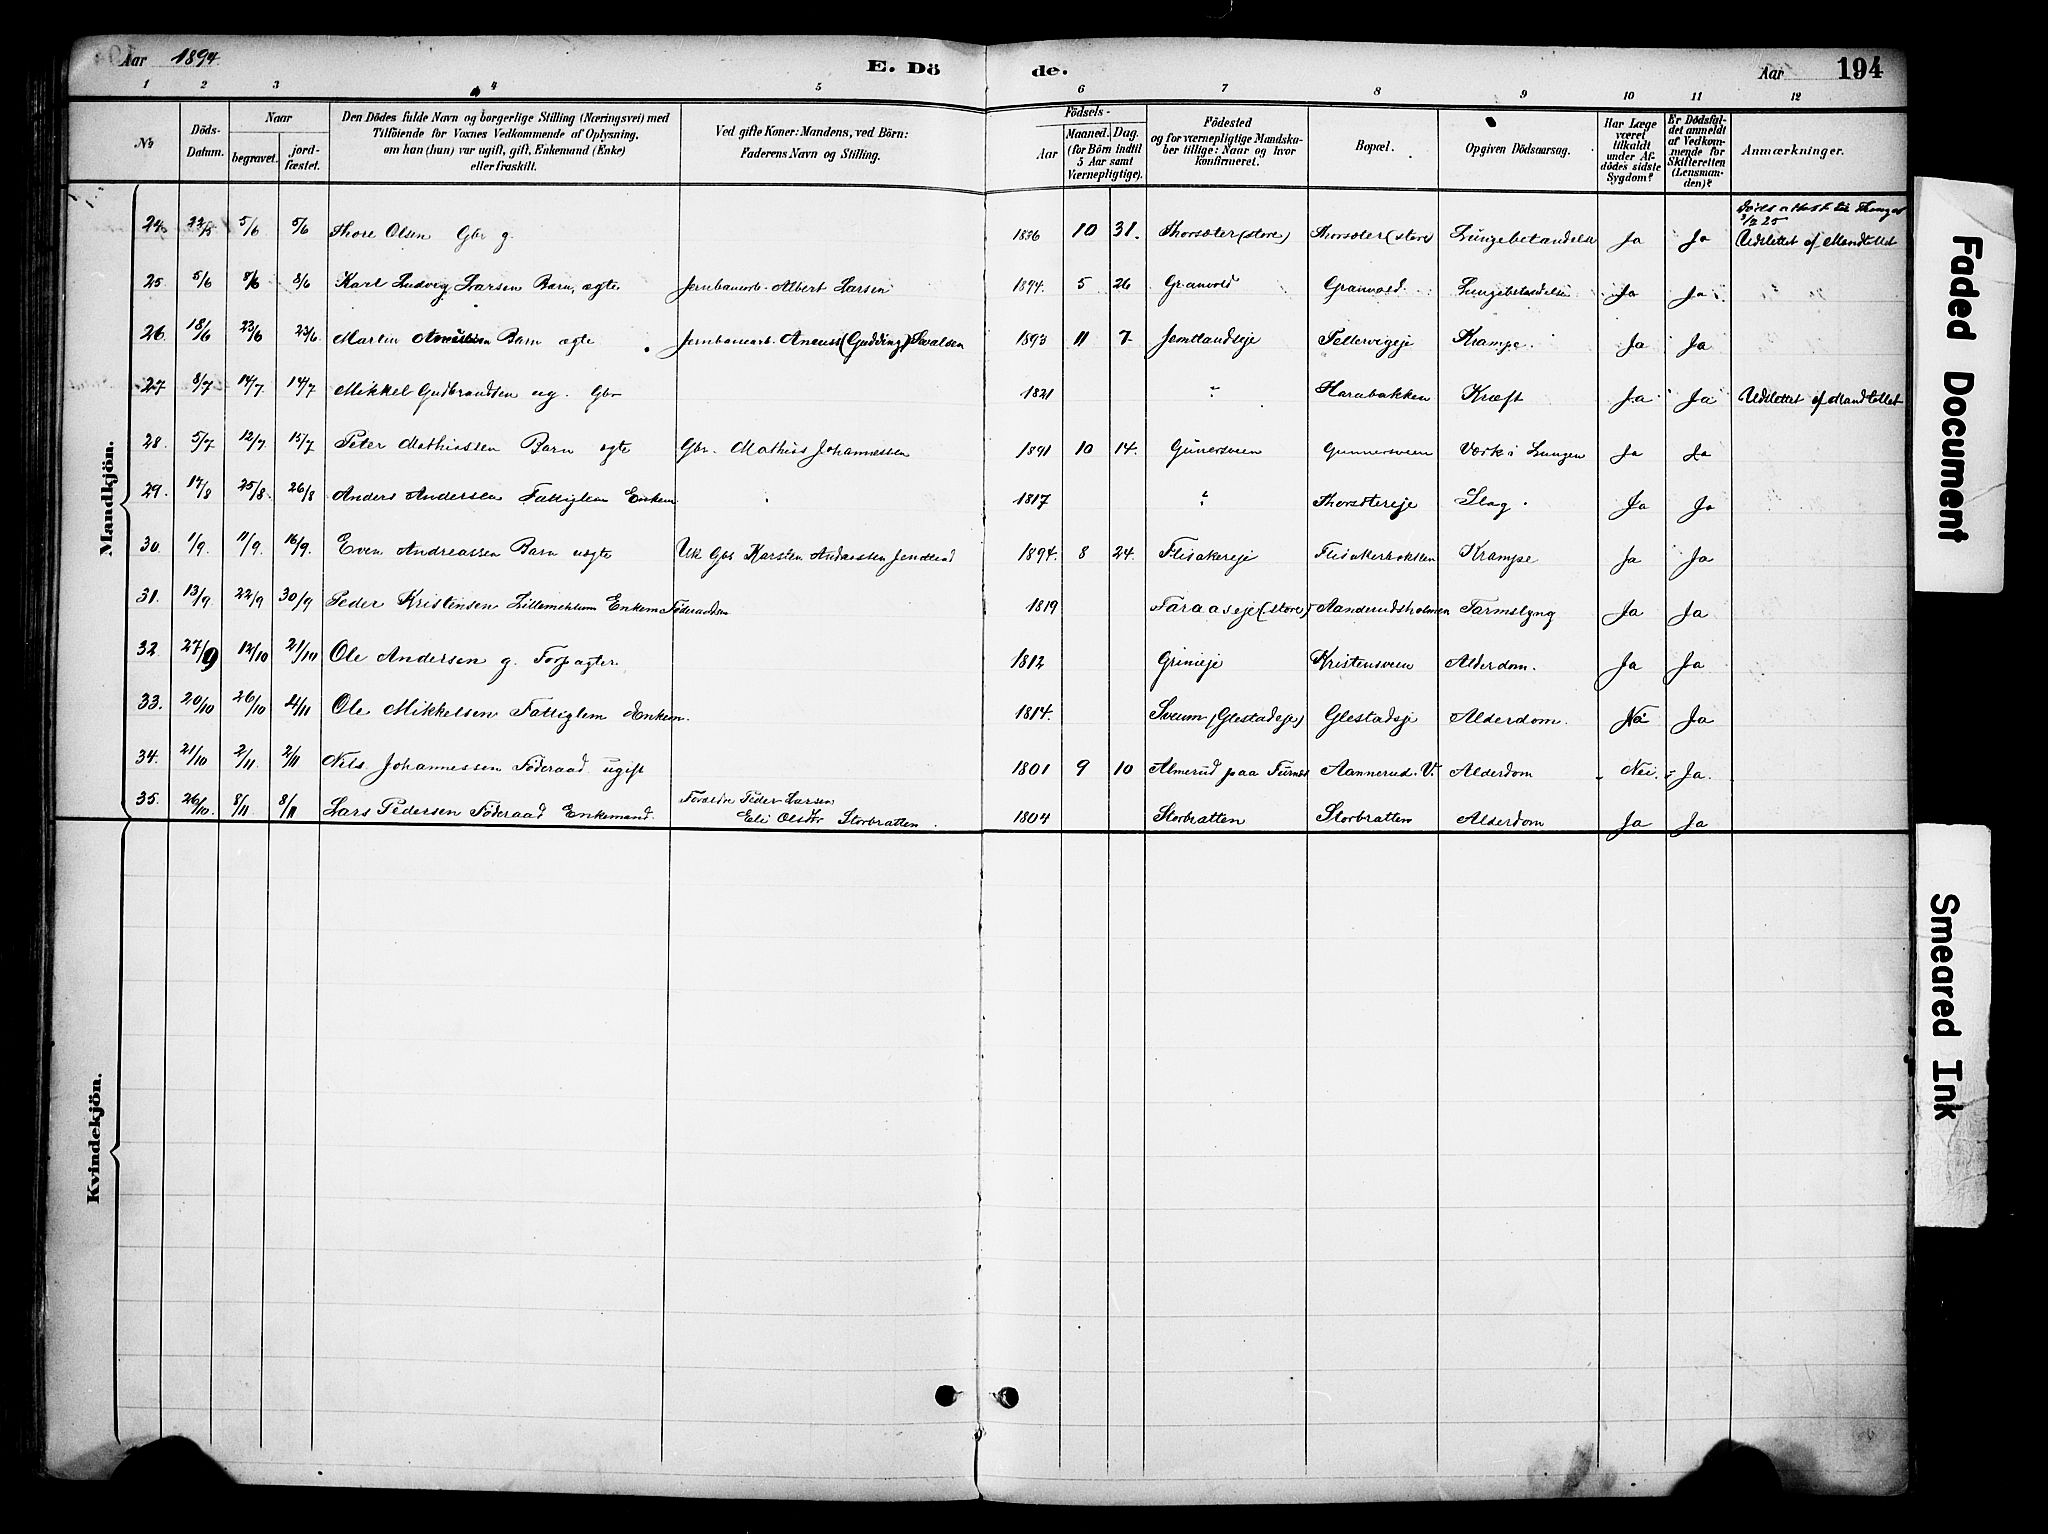 Aar 1894. E. Döde. Aar 194
1 2 3 4 5 6 7 8 9 10 11 12
No
Döds-Datum.
Naar
begravet.
jordfæstet.
Den Dödes fulde Navn og borgerlige Stilling (Næringsvei) med
Tilföiende for Voxnes Vedkommende af Oplysning,
om han (hun) var ugift, gift, Enkemand (Enke)
eller fraskilt.
Ved gifte Koner: Mandens, ved Börn:
Faderens Navn og Stilling.
Födsels-
Aar
Maaned. Dag.
(for Börn indtil
5 Aar samt
Værnepligtige).
Födested
og for værnepligtige Mandska-
ber tillige: Naar og hvor
konfirmeret.
Bopæl.
Opgiven Dödsaarsag.
Har Læge
været
tilkaldt
under Af-
dödes sidste
Sygdom?
Er Dödsfal-
det anmeldt
af Vedkom-
mende for
Skifteretten
(Lensman-
den)?
Anmærkninger.
Mandkjön.
24 22/5 5/6 5/6 Thore Olsen Gbr g. 1836 10 31. Thorsøter (store) Thorsøter (store) Lungebetændelse Ja Ja Udslettet af Mandtallet
25. 5/6 8/6 8/6 Karl Ludvig Larsen Barn, ægte Jernbanearb. Albert Larsen 1894. 5 26 Granvold Granvold. Lungebetændelse Ja Ja
26. 18/6 23/6 23/6 Martin Barn ægte Jernbanearb. (Gudding) 1893 11 7. Jemtlandseje Fellervigeje Krampe. Ja Ja
27 8/7 14/7. 14/7 Mikkel Gudbrandsen ug. Gbr 1821 " Harabakken Kræft Ja Ja Udslettet af Mandtallet
28. 5/7 12/7 15/7 Peter Mathiassen Barn ægte Gbr. Mathias Johannessen 1891 10 14. Gunersveen Gunnersveen Værk i Lungen Ja Ja
29. 17/8 25/8. 26/8 Anders Andersen Fattiglem Enkem 1817 " Thorsøtereje Slag. Ja Ja
30. 1/9. 11/9. 16/9. Even Andreassen Barn uægte Uk Gbs Karsten Andreassen Jemtland 1894. 8 24. Flisakereje Flisakerbakken Krampe Ja Ja
31. 13/9. 22/9 30/9 Peder Kristensen Lillemehlum Enkem Föderaadsm 1819 Faraaseje (store) Aanderudsholmen Tarmslyng Ja Ja
32 27/9 12/10 21/10 Ole Andersen g. Forpagter. 1812 Grinieje Kristensveen Alderdom. Ja Ja
33. 20/10 26/10 4/11 Ole Mikkelsen Fattiglem Enkem. 1814. Sveum (Glestadeje) Glestadeje Alderdom. Nei Ja
34. 21/10 2/11. 2/11 Nils Johannessen Föderaad ugift 1801 9 10 Almerud paa Furnes Aannerud. V. Alderdom Nei. Ja.
35. 26/10. 8/11 8/11 Lars Pedersen Föderaad Enkemand. Forældre Peder Larsen
Eli Olsdtr Storbratten. 1804 Storbratten Storbratten Alderdom Ja Ja
Kvindekjön.
Faded Document
Smeared Ink